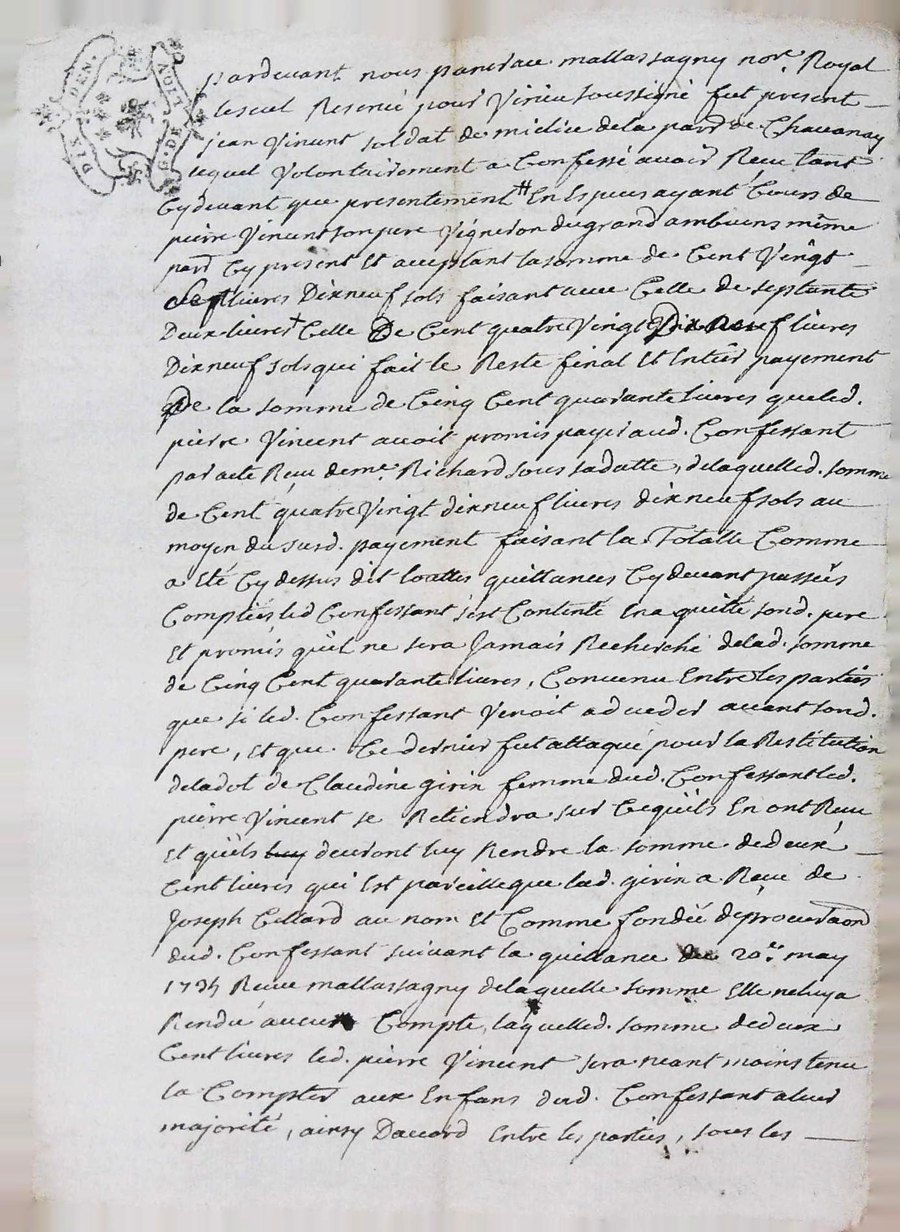 DIX DEN.
G. DE
pardevant nous pancrace mallassagny nore. Royal
lescul Reservé pour Virieu soussigné fut present
jean Vincent soldat de milice de la parr de Chavanay
lequel Volontairement a Confessé avoir Receu tant
Cydevant que presentement # En Especes ayant Cours de
pierre Vincent son pere Vigneron du grand ambuens même
parr Cy present Et acceptant la somme de Cent Vingt
Sept livres Dixneuf sols faisant avec Celle de septante
Deux livres + Celle De Cent quatre Vingt Dixneuf livres
Dixneuf sols qui fait le Reste final Et Entier payement
De la somme de Cinq Cent quarante livres que led.
pierre Vincent avoit promis payer aud. Confessant
par acte Receu de me. Richard sous sa datte, de laquelle d. somme
de Cent quatre Vingt dixneuf livres dixneuf sols au
moyen du susd. payement faisant la Totalle Comme
a Eté Cy dessus dit touttes quittances Cy devant passées
Comptées led Confessant s'est Contenté En a quitté sond. pere
Et promis qu'il ne sera Jamais Recherché de lad. somme
de Cinq Cent quarante livres, Convenu Entre les parties
que si led. Confessant Venoit a deceder avant sond.
pere, Et que Ce dernier fut attaqué pour la Restitution
de la dot de Claudine girin femme dud. Confessant led.
pierre Vincent se Retiendra sur Ce quils En ont Receu
Et quils luy devront luy Rendre la somme de deux
Cent livres qui Est pareille que lad. girin a Receu de
Joseph Cellard au nom Et Comme fondée de procuraon
dud. Confessant suivant la quittance du 20e. may
1735 Receue mallassagny de laquelle somme Elle ne luy a
Rendu aucun Compte, laquelle d. somme de deux
Cent livres led. pierre Vincent sera neant moins tenu
la Compter aux Enfans dud. Confessant a leur
majorité, ainsy Daccord Entre les parties, sous les